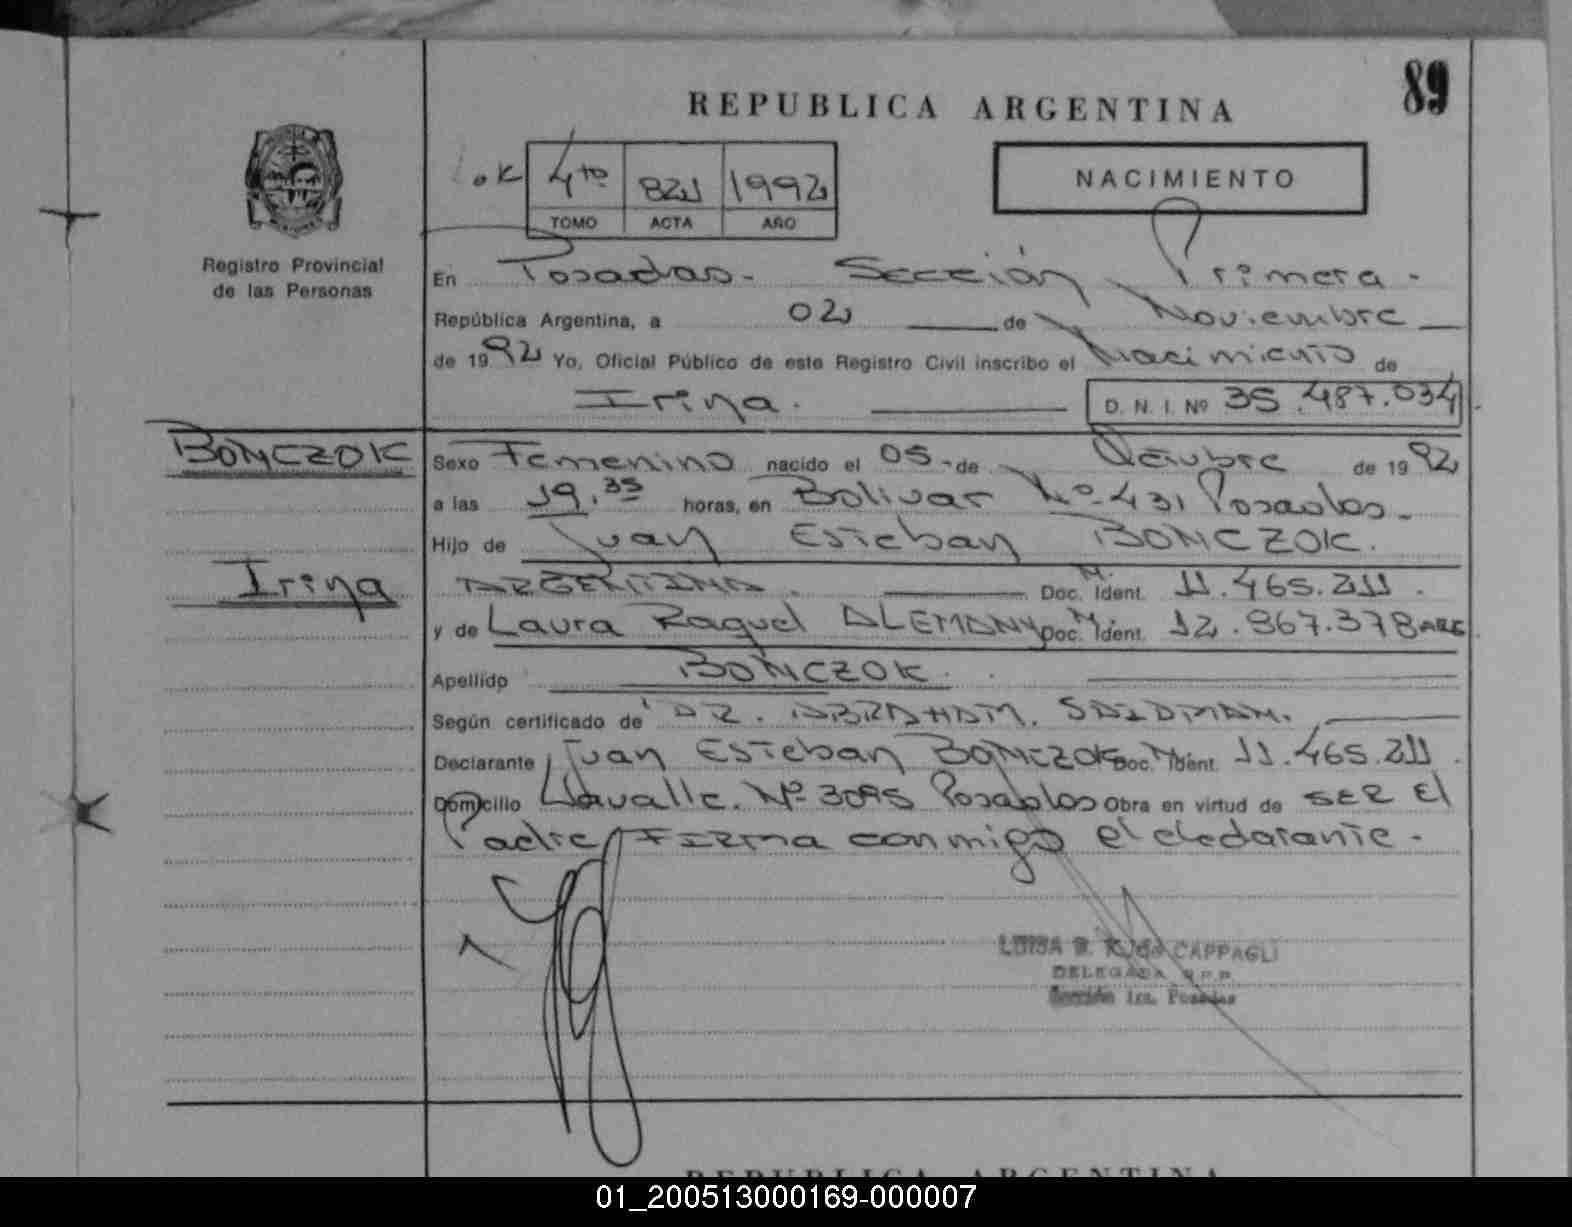 89
REPUBLICA ARGENTINA
OK 4to 821 1992
TOMO ACTA AÑO
NACIMIENTO
Registro Provincial
de las Personas
En Posadas - Sección Primera -
República Argentina, a 02 de Noviembre
de 1992 Yo, Oficial Público de este Registro Civil inscribo el Nacimiento de
Irina. D. N. I. Nº 35.487.034
BONCZOK
Sexo Femenino nacido el 05 - de Octubre de 1992
a las 19.35 horas, en Bolivar Nº 431 Posadas -
Hijo de Juan Esteban BONCZOK.
Irina
ARGENTINA. Doc. M. Ident. 11.465.211.
y de Laura Raquel ALEMANY Doc. M. Ident. 12.867.378 ARG
Apellido BONCZOK.
Según certificado de DR. ABRAHAM. SAIDMAN.
Declarante Juan Esteban BONCZOK Doc. M. Ident. 11.465.211.
Domicilio Lavalle. Nº 3095 Posadas Obra en virtud de SER El
Padre FIRMA conmigo el declarante.
LUISA CAPPAGLI
DELEGADA R.P.P.
Sección 1ra. Posadas
REPUBLICA ARGENTINA
01_200513000169-000007